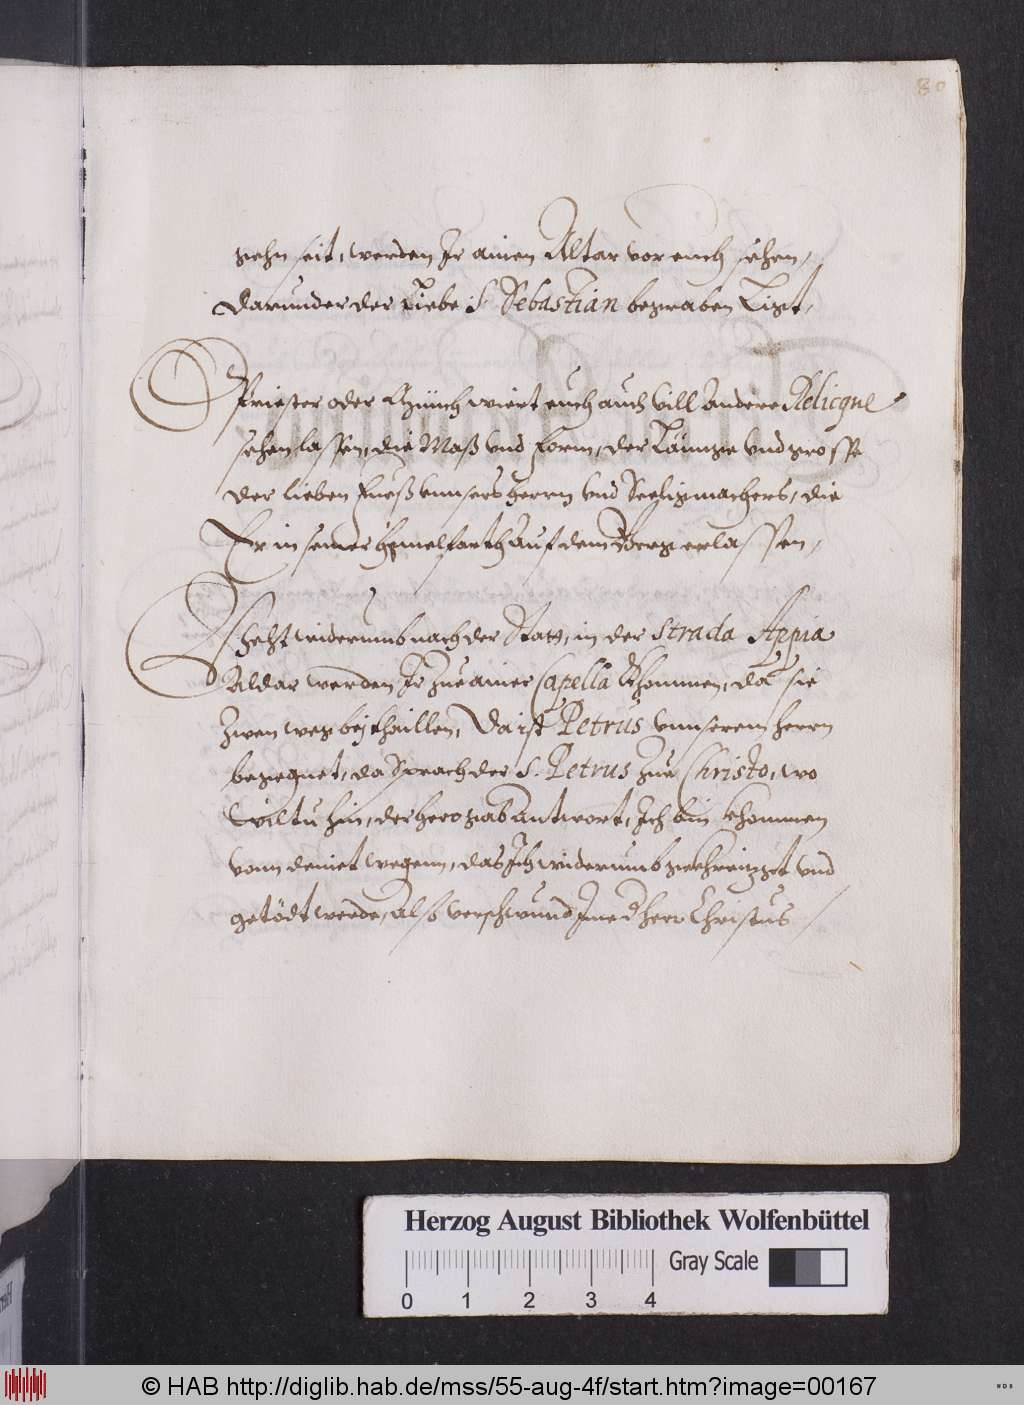 80
gehn seit, werden Ir ainen Altar vor euch sehen,
darunder der Liebe S. Sebastian begraben Ligt,
Priester oder Münch wiert euch auch vill Andere Relique
sehen lassen, die Maß vnd form, der Lännge vnd grosse
der lieben Fueß vnnsers herrn vnd Seeligmachers, die
Er in seiner himelfarth auf dem Berg erlassen,
Geht widerumb nach der Statt, in der Strada Appia
Aldar werden Ir zue ainer Capella khommen, da sie
Zwen weg bej thaillen, Da ist Petrus vnnserem herrn
begegnet, da Sprach der S. Petrus zue Christo, wo
wiltu hin, der herr gab antwort, Ich bin khommen
von deinet wegenn, das Ich widerumb gekhreizgt vnd
getödt werde, also verschwund Ime d herr Christus
Herzog August Bibliothek Wolfenbüttel
Gray Scale
0 1 2 3 4
© HAB http://diglib.hab.de/mss/55-aug-4f/start.htm?image=00167